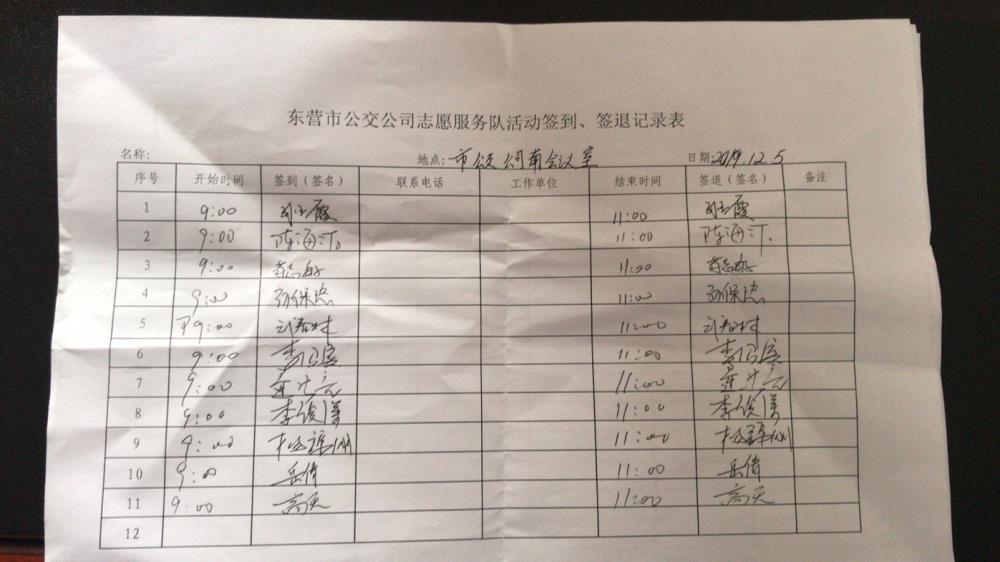 东营市公交公司志愿服务队活动签到、签退记录表
名称: 地点: 市公交公司南会议室 日期: 2019.12.5
序号 开始时间 签到（签名） 联系电话 工作单位 结束时间 签退（签名） 备注
1 9:00 11:00
2 9:00 陈海汀 11:00 陈海汀
3 9:00 11:00
4 9:00 孙保忠 11:00 孙保忠
5 9:00 11:00
6 9:00 11:00
7 9:00 11:00
8 9:00 李俊滨 11:00 李俊滨
9 9:00 11:00
10 9:00 岳倩 11:00 岳倩
11 9:00 高天 11:00 高天
12